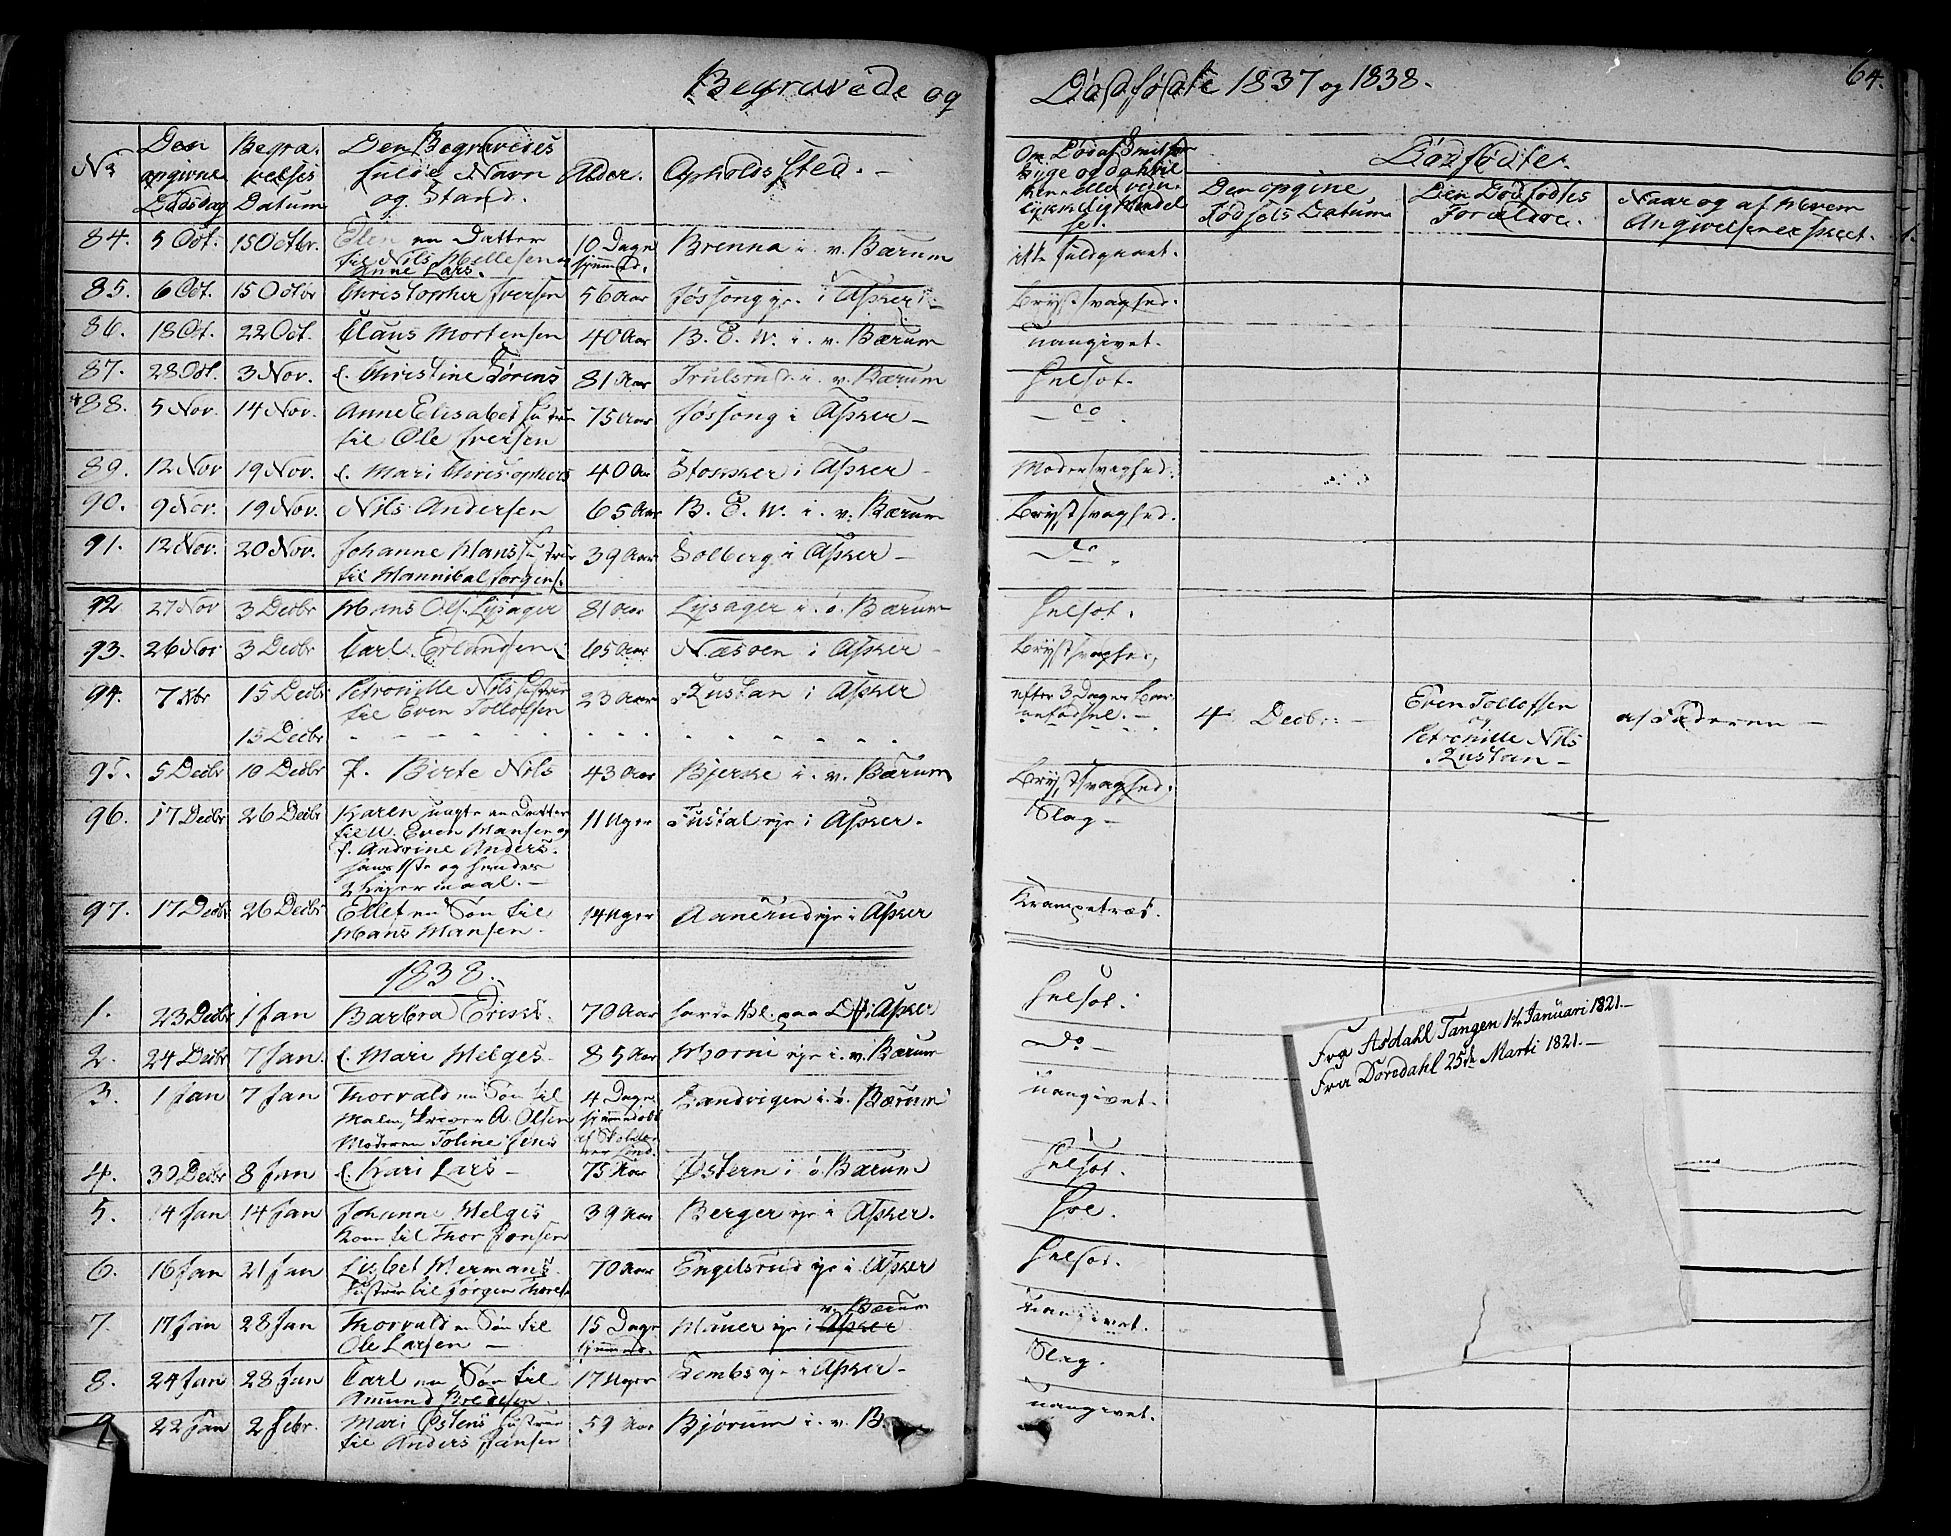 Begravede og
Dødfødte 1837 og 1838.
64.
No
Den angivne Dødsdag
Begravelses Datum
Den Begravedes fulde Navn og Stand.
Alder.
Opholdssted.
Dødfødte.
Den opgivne Fødsels Datum
Den Dødfødtes Forældre.
Naar og af hvem Angivelsen er skeet.
84. 5 Oct. 15 Octbr. Elen en Datter 10 Dage Brenna i v. Bærum
til Nils Hellesen og hjemmed.
Anne Lars.
85. 6 Oct. 15 Octbr Christopher Iversen 56 Aar Fossong i Asker Brystsvaghed.
86. 18 Oct. 22 Oct. Claus Mortensen 40 Aar B. E. W. i v. Bærum uangivet.
87. 28 Oct. 3 Nov. E. Christine Sørens 81 Aar Trulsrud i v. Bærum Helsot.
88. 5 Nov. 14 Nov. Anne Elisabet Hustrue 75 Aar Fossong i Asker – do
til Ole Iversen
89. 12 Nov 19 Nov. E. Mari Christophers 40 Aar Stokker i Asker Modersvaghed.
90. 9 Nov. 19 Nov. Nils Andersen 65 Aar B. E. W. i v. Bærum Brystsvaghed.
91. 12 Nov. 20 Nov. Johanne Hans Hustrue 39 Aar Solberg i Asker – Do
til Hannibal Jørgens.
92 27 Nov 3 Decbr Hans Ols. Lysager 81 Aar Lysager i ø. Bærum Helsot.
93. 26 Nov 3 Decbr Carl Erlandsen 65 Aar Næsøen i Asker Brystsvaghed,
94. 7 Nbr 15 Decbr Petronille Nils Hustrue 23 Aar Kustan i Asker efter 3 Dages Bar-
til Even Tollofsen nefødsel. –
15 Decbr 4 Decbr: – Even Tollofsen af Faderen –
og
Petronille Nils
Kustan –
95. 5 Decbr 10 Decbr F. Birte Nils 43 Aar Bjerke i v. Bærum Brystsvaghed.
96. 17 Decbr 26 Decbr Karen uægte en Datter 11 Uger Tustal eje i Asker. Slag –
til U. Even Hansen og
P. Andrine Anders.
hans 1ste og hendes
2 Leiermaal. –
97. 17 Decbr 26 Decbr Ellef en Søn til 14 Uger Aanerud eje i Asker Krampetræk.
Hans Hansen.
1838.
1. 23 Decbr 1 Jan Barbra Eriks. 70 Aar i Asker Helsot.
2. 24 Decbr 7 Jan. E. Mari Helges 85 Aar Horni eje i v. Bærum Do –
3. 1 Jan 7 Jan Thorvald en Søn til 4 Dage Sandvigen i ø. Bærum uangivet.
A. Olsen hjemmedøbt
Moderen Toline Jens
4. 30 Decbr 8 Jan E. Kari Lars – 75 Aar Østern i ø. Bærum Helsot.
5. 4 Jan 14 Jan Johanne Helges 39 Aar Berger eje i Asker.
Kone til Thor Jonsen
6. 16 Jan 21 Jan Lisbet Hermans 70 Aar Engelsrud eje i Asker Helsot.
Hustrue til Jørgen Thores.
7. 17 Jan 28 Jan Thorvald en Søn til 15 Dage Hauer eje i v. Bærum Asker uangivet.
Ole Larsen – hjemmed.
8. 24 Jan 28 Jan Carl en Søn til 17 Uger Sembs eje i Asker – Slag.
Amund Bredesen.
9 22 Jan 2 Febr. Mari Østens Hustrue 59 Aar Bjørum i v. B. uangivet.
til Anders Jansen
Fra Asdahl Tangen 14 Januari 1821. –
Fra Döredahl 25de Marti 1821. –